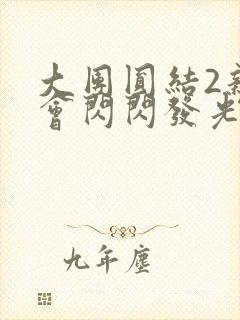 大團圓結2
會閃閃發光
九年塵